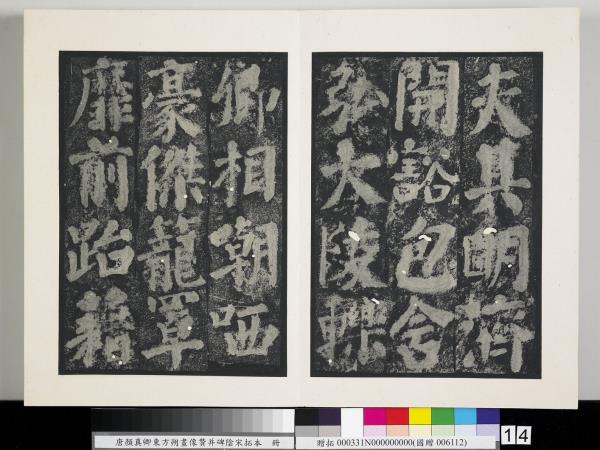 夫其眀濟
開豁包含
弘大陵轢
卿相嘲哂
豪傑籠罩
靡前跆籍
唐顏真卿東方朔畫像贊并碑陰宋拓本 冊
贈拓 000331N000000000(國贈 006112)
14